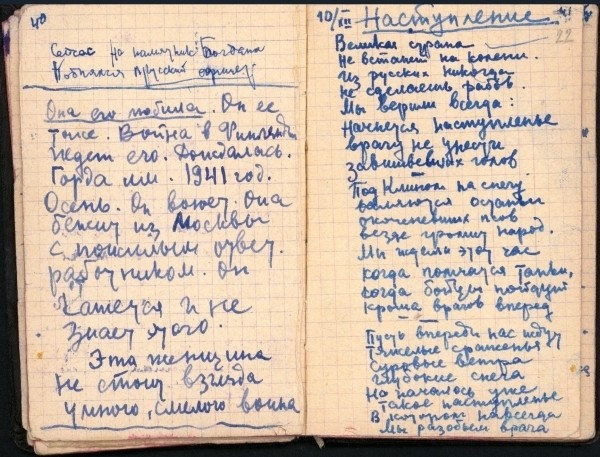 40
Сейчас на памятник Богдана
Поднялся русский офицер
Она его любила. Он ее
тоже. Война в Финляндии
ждет его. Дождалась.
Горда им. 1941 год.
Осень. Он воюет. Она
бежит из Москвы
с пожилым ответ.
работником. Он
кажется и не
знает этого.
Эта женщина
не стоит взгляда
умного, смелого воина
10/XII Наступление 41
22
Великая страна
Не встанет на колени.
Из русских никогда
не сделаешь рабов.
Мы верили всегда:
Начнется наступленье
врагу не унести
завшивевших голов
Под Клином на снегу
валяются остатки
окоченевших псов
везде громит народ.
Мы ждали этот час
когда помчатся танки,
когда бойцы пойдут
кроша врагов вперед
Пусть впереди нас ждут
тяжелые сраженья
суровые ветра
глубокие снега
Но началось уже
такое наступленье
В котором навсегда
Мы разобьем врага